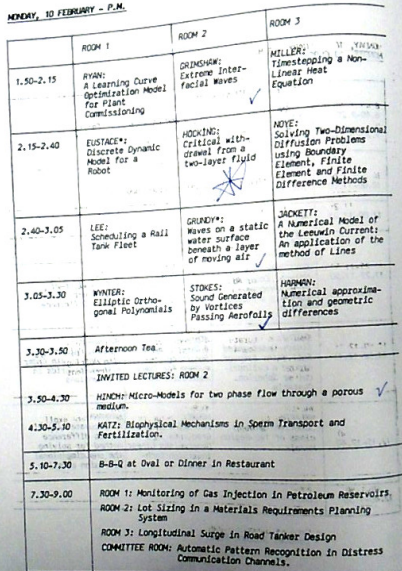 MONDAY, 10 FEBRUARY - P.M.
ROOM 1
ROOM 2
ROOM 3
1.50-2.15
RYAN:
A Learning Curve
Optimization Model
for Plant
Commissioning
GRIMSHAW:
Extreme Inter-
facial Waves
MILLER:
Timestepping a Non-
Linear Heat
Equation
2.15-2.40
EUSTACE*:
Discrete Dynamic
Model for a
Robot
HOCKING:
Critical with-
drawal from a
two-layer fluid
NOYE:
Solving Two-Dimensional
Diffusion Problems
using Boundary
Element, Finite
Element and Finite
Difference Methods
2.40-3.05
LEE:
Scheduling a Rail
Tank Fleet
GRUNDY*:
Waves on a static
water surface
beneath a layer
of moving air
JACKETT:
A Numerical Model of
the Leeuwin Current:
An application of the
method of Lines
3.05-3.30
WYNTER:
Elliptic Ortho-
gonal Polynomials
STOKES:
Sound Generated
by Vortices
Passing Aerofoils
HARMAN:
Numerical approxima-
tion and geometric
differences
3.30-3.50
Afternoon Tea
INVITED LECTURES: ROOM 2
3.50-4.30
HINCH: Micro-Models for two phase flow through a porous
medium.
4.30-5.10
KATZ: Biophysical Mechanisms in Sperm Transport and
Fertilization.
5.10-7.30
B-B-Q at Oval or Dinner in Restaurant
7.30-9.00
ROOM 1: Monitoring of Gas Injection in Petroleum Reservoirs.
ROOM 2: Lot Sizing in a Materials Requirements Planning
System
ROOM 3: Longitudinal Surge in Road Tanker Design
COMMITTEE ROOM: Automatic Pattern Recognition in Distress
Communication Channels.